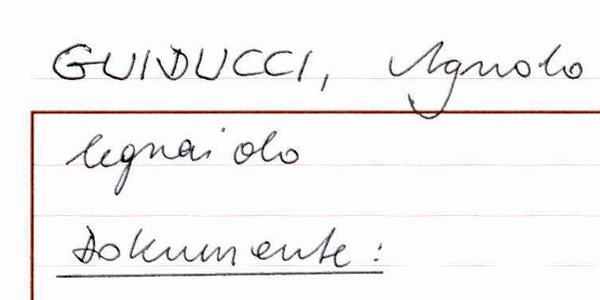 GUIDUCCI, Agnolo
legnaiolo
Dokumente: